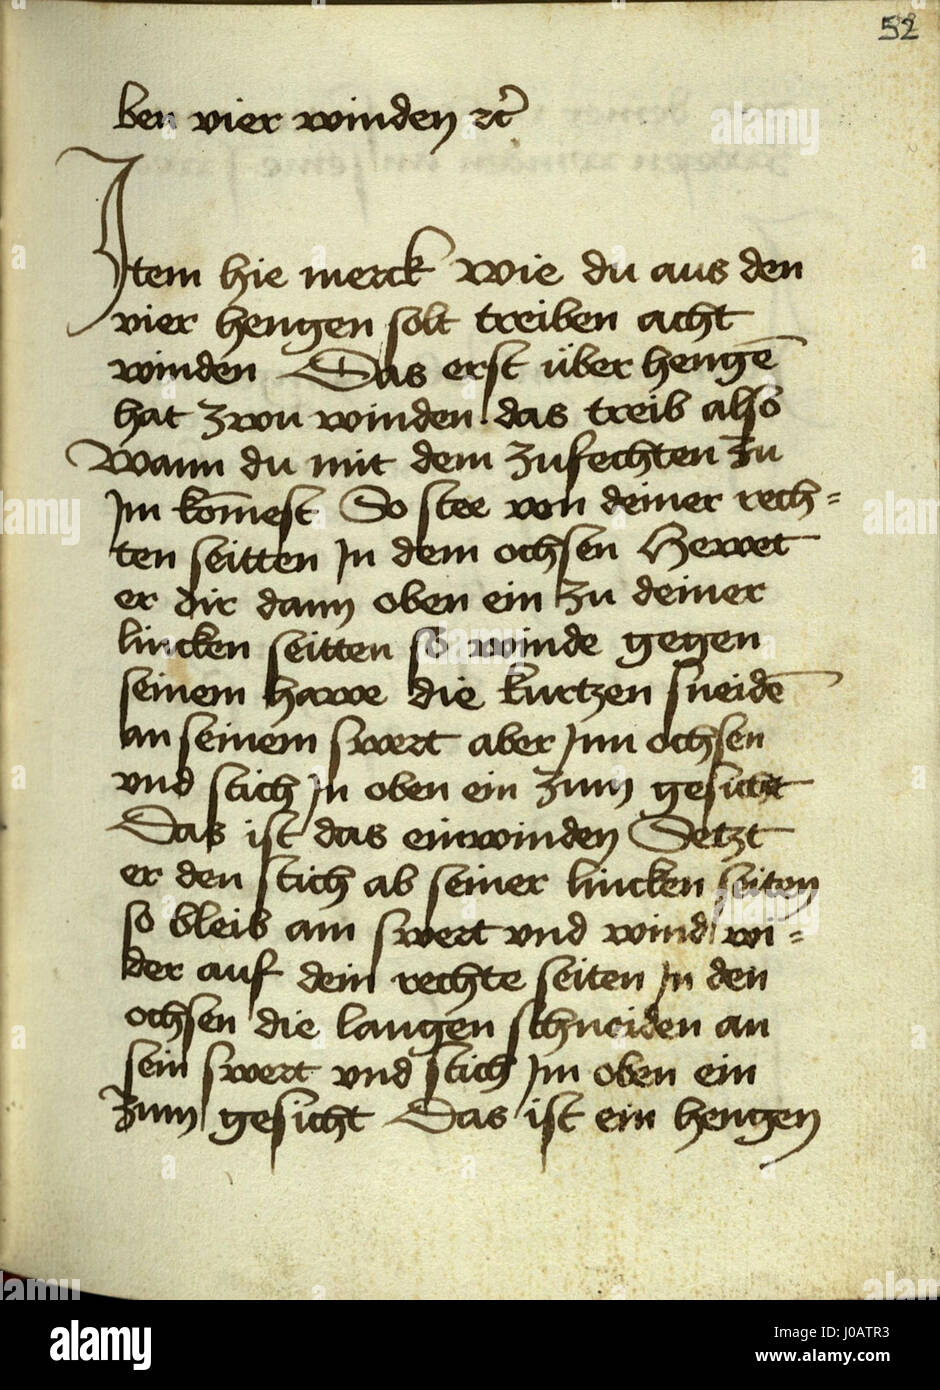 52
ben vier winden ꝛc̄
Item hie merck wie du aus den
vier hengen solt treiben acht
winden Das erst über hengē
hat zwu winden das treib also
Wann du mit dem zufechten zu
Im kōmest So stee von deiner rech=
ten seitten In dem ochsen Hewet
er dir dann oben ein zu deiner
lincken seitten so winde gegen
seinem hawe die kurtzen sneidē
an seinem swert aber Inn ochsen
vnd stich In oben ein zum gesicht
Das ist das einwinden Setzt
er den stich ab seiner lincken seiten
so bleib am swert vnd wind wi=
der auf dein rechte seiten In den
ochsen die langen schneiden an
sein swert vnd stich Im oben ein
zum gesicht Das ist ein hengen
alamy
Image ID: J0ATR3
www.alamy.com